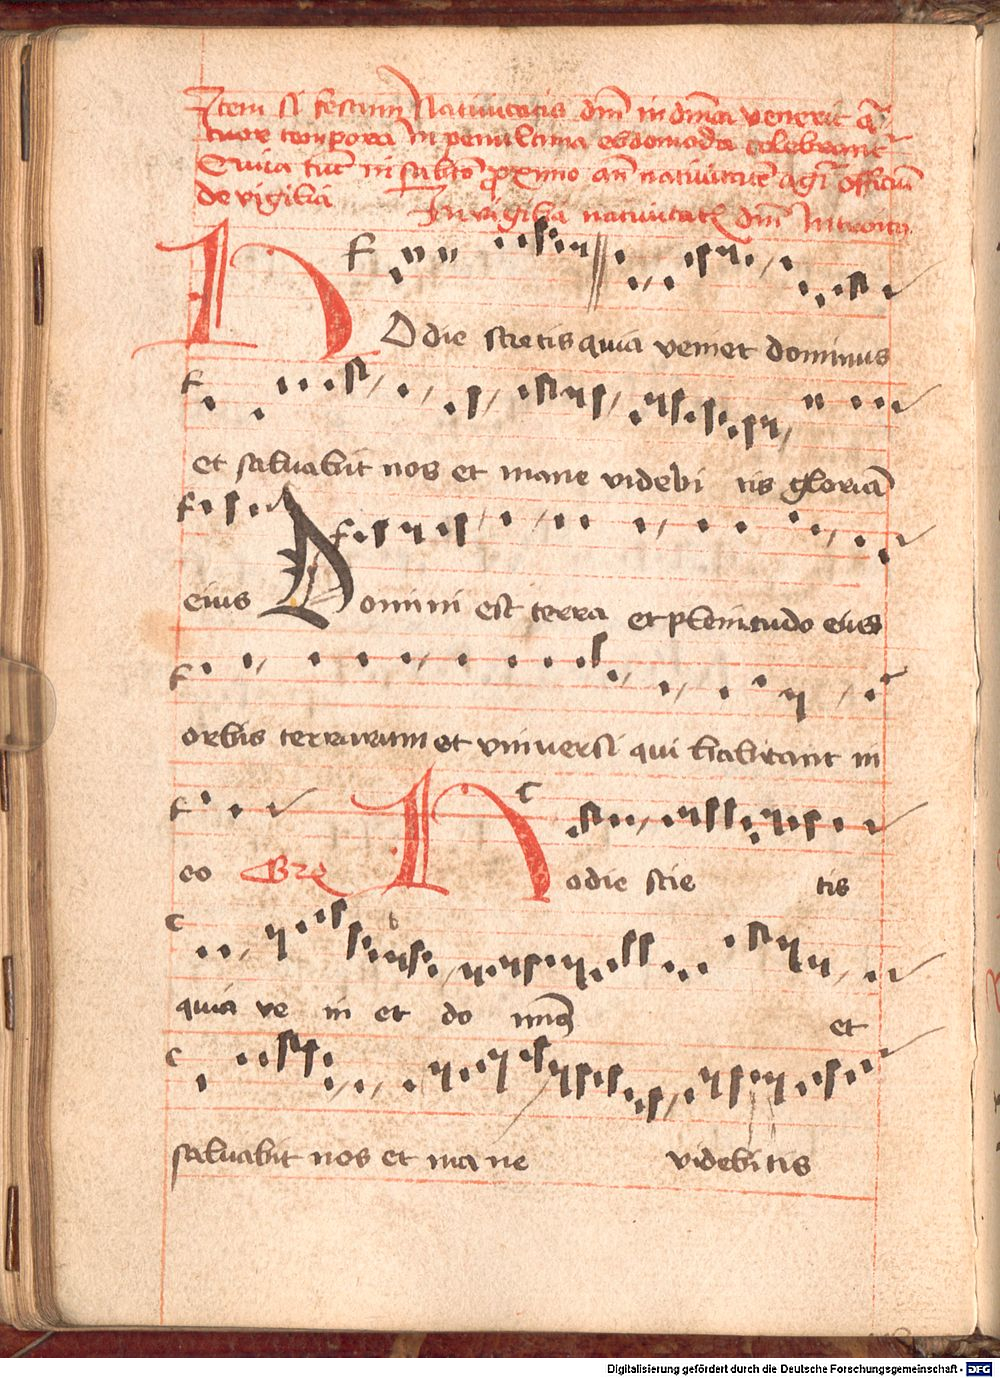 Item si festum Natiuitatis dm̄ in dm̄ca venerit q̄
tuor tempora in penultima ebdomoda celebrant̄
Quia tūc in sabb̄to proximo an̄ natiuitatē agit̄ officiū
de vigilia In vigilia natiuitatis dm̄ Introitus
F
HOdie scietis quia veniet dominus
F
et saluabit nos et mane videbi tis gloriā
F F
eius Domini est terra et plenitudo eius
F
orbis terrarum et vniuersi qui habitant in
F C
eo Gre Hodie scie tis
C b
quia ve ni et do min9 et
C
saluabit nos et ma ne videbitis
Digitalisierung gefördert durch die Deutsche Forschungsgemeinschaft - DFG